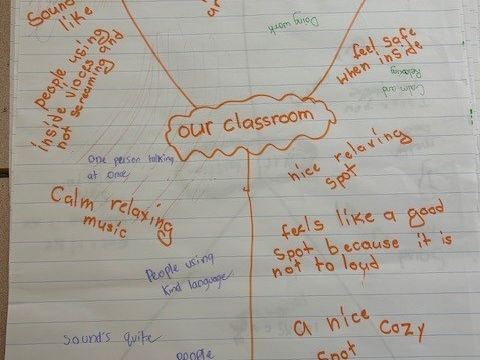 Sound
like
people using
inside voices and
not screaming
Doing work
feel safe
when inside
Relaxing
Calm and
our classroom
One person talking
at once
nice relaxing
spot
Calm relaxing
music
feels like a good
spot because it is
not to loud
People using
kind language
a nice cozy
spot
Sound's quite
people